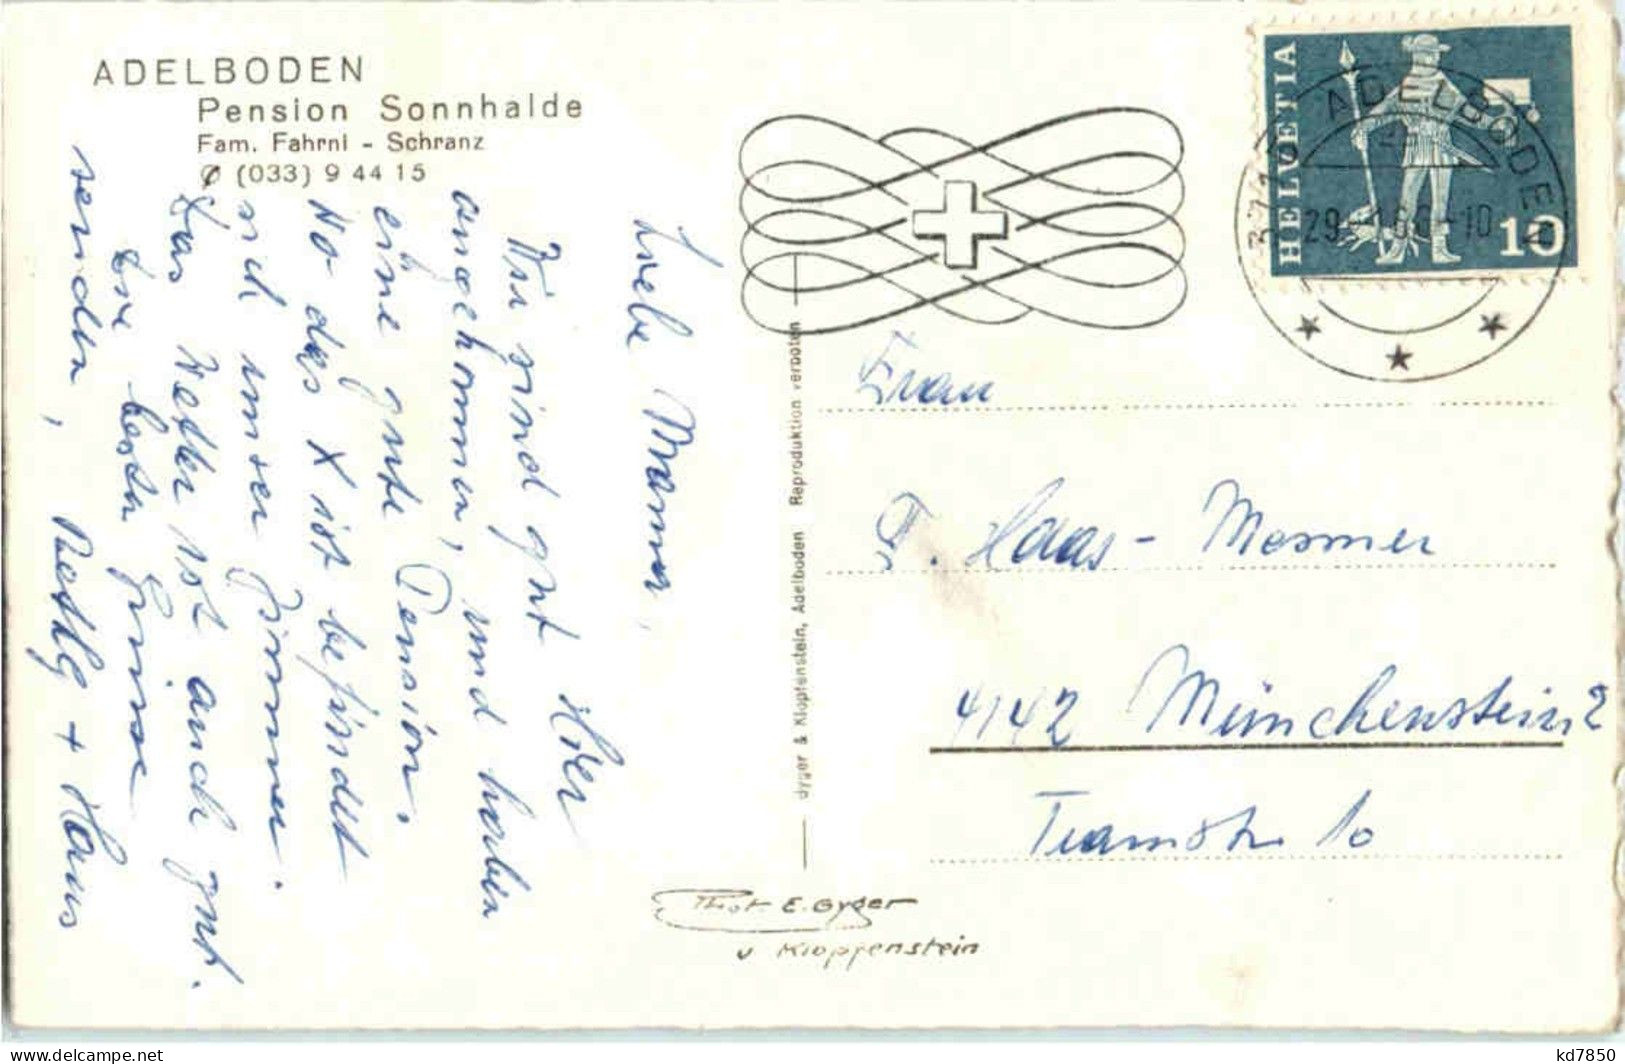 ADELBODEN
Pension Sonnhalde
Fam. Fahrni - Schranz
✆ (033) 9 44 15
Liebe Mama,
Wir sind gut Hier
angekommen, und haben
eine gute Pension,
Wo das X ist befindet
sich unser Zimmer.
Das Wetter ist auch gut.
Die besten Grüsse
senden, Bethly + Hans
Gyger & Klopfenstein, Adelboden Reproduktion verboten
Phot. E. Gyger
u Klopfenstein
HELVETIA
10
3715 ADELBODEN
29 -10
Frau
F. Haas - Mesmer
4142 Münchenstein 2
Tramstr. 10
kd7850